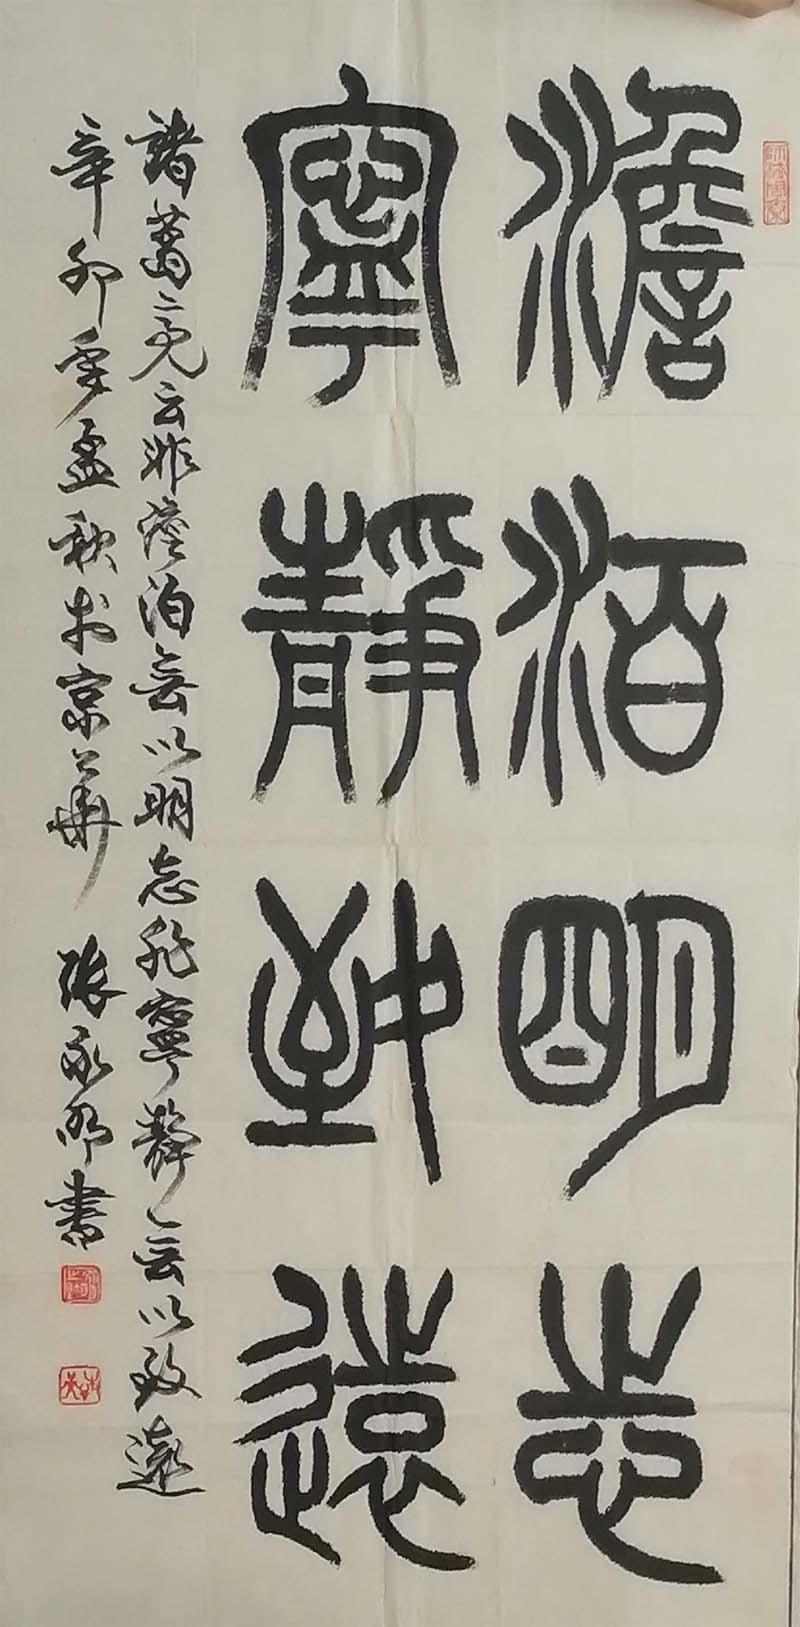 澹泊明志
寧靜致遠
諸葛亮云非澹泊無以明志非寧靜無以致遠
辛卯年孟秋於京華張永明書